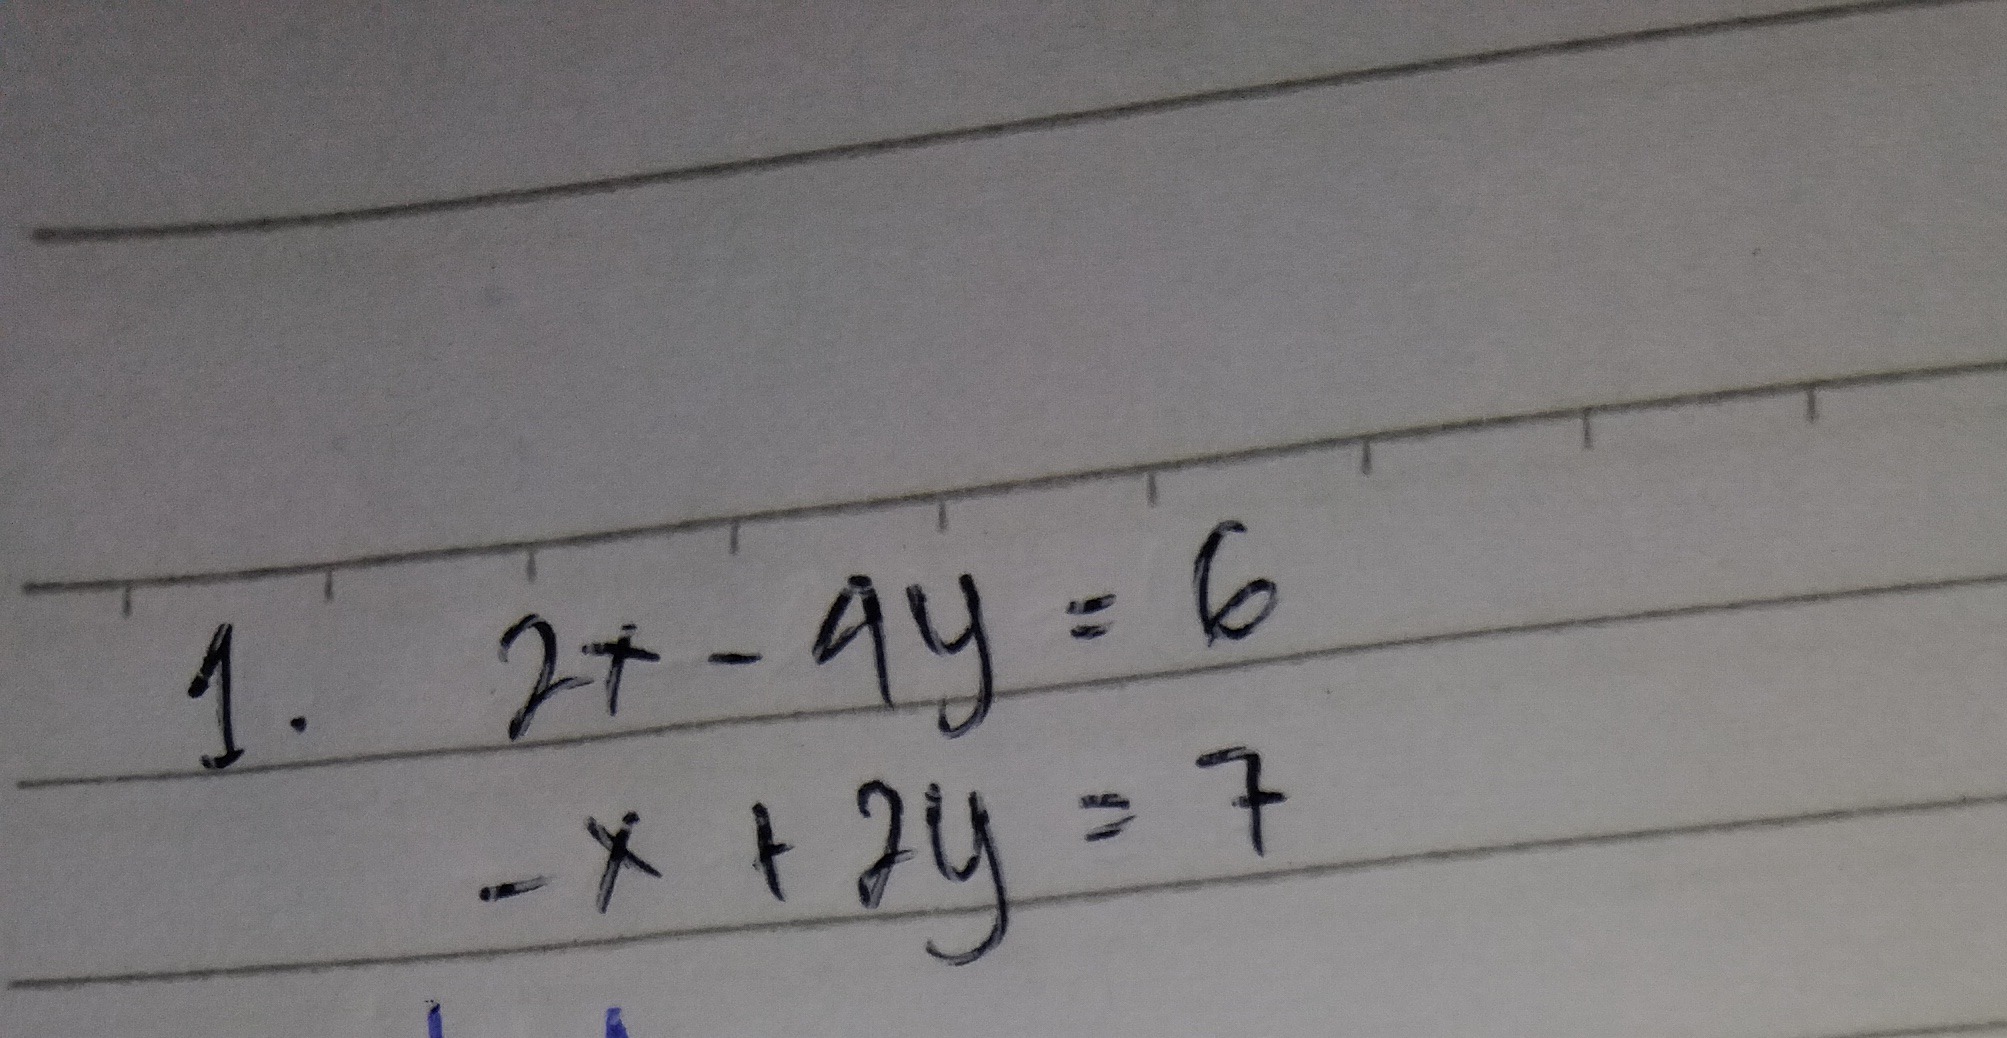 1. 2x - 4y = 6
-x + 2y = 7